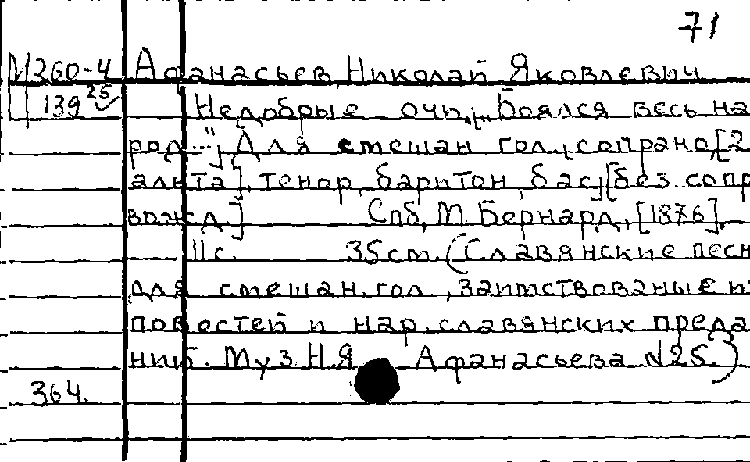 71
М260-4 Афанасьев, Николай Яковлевич
Ц 139 25 Недобрые очи. [„Боялся весь на
род..."] Для смешан гол., сопрано, [2
альта], тенор, баритон, бас, [без сопр
вожд.] Спб, М. Бернард, [1876].
11 с. 35 см. (Славянские песн
для смешан. гол., заимствованые и
повостей и нар. славянских преда
ний. Муз. Н.Я. Афанасьева N25.)
364.